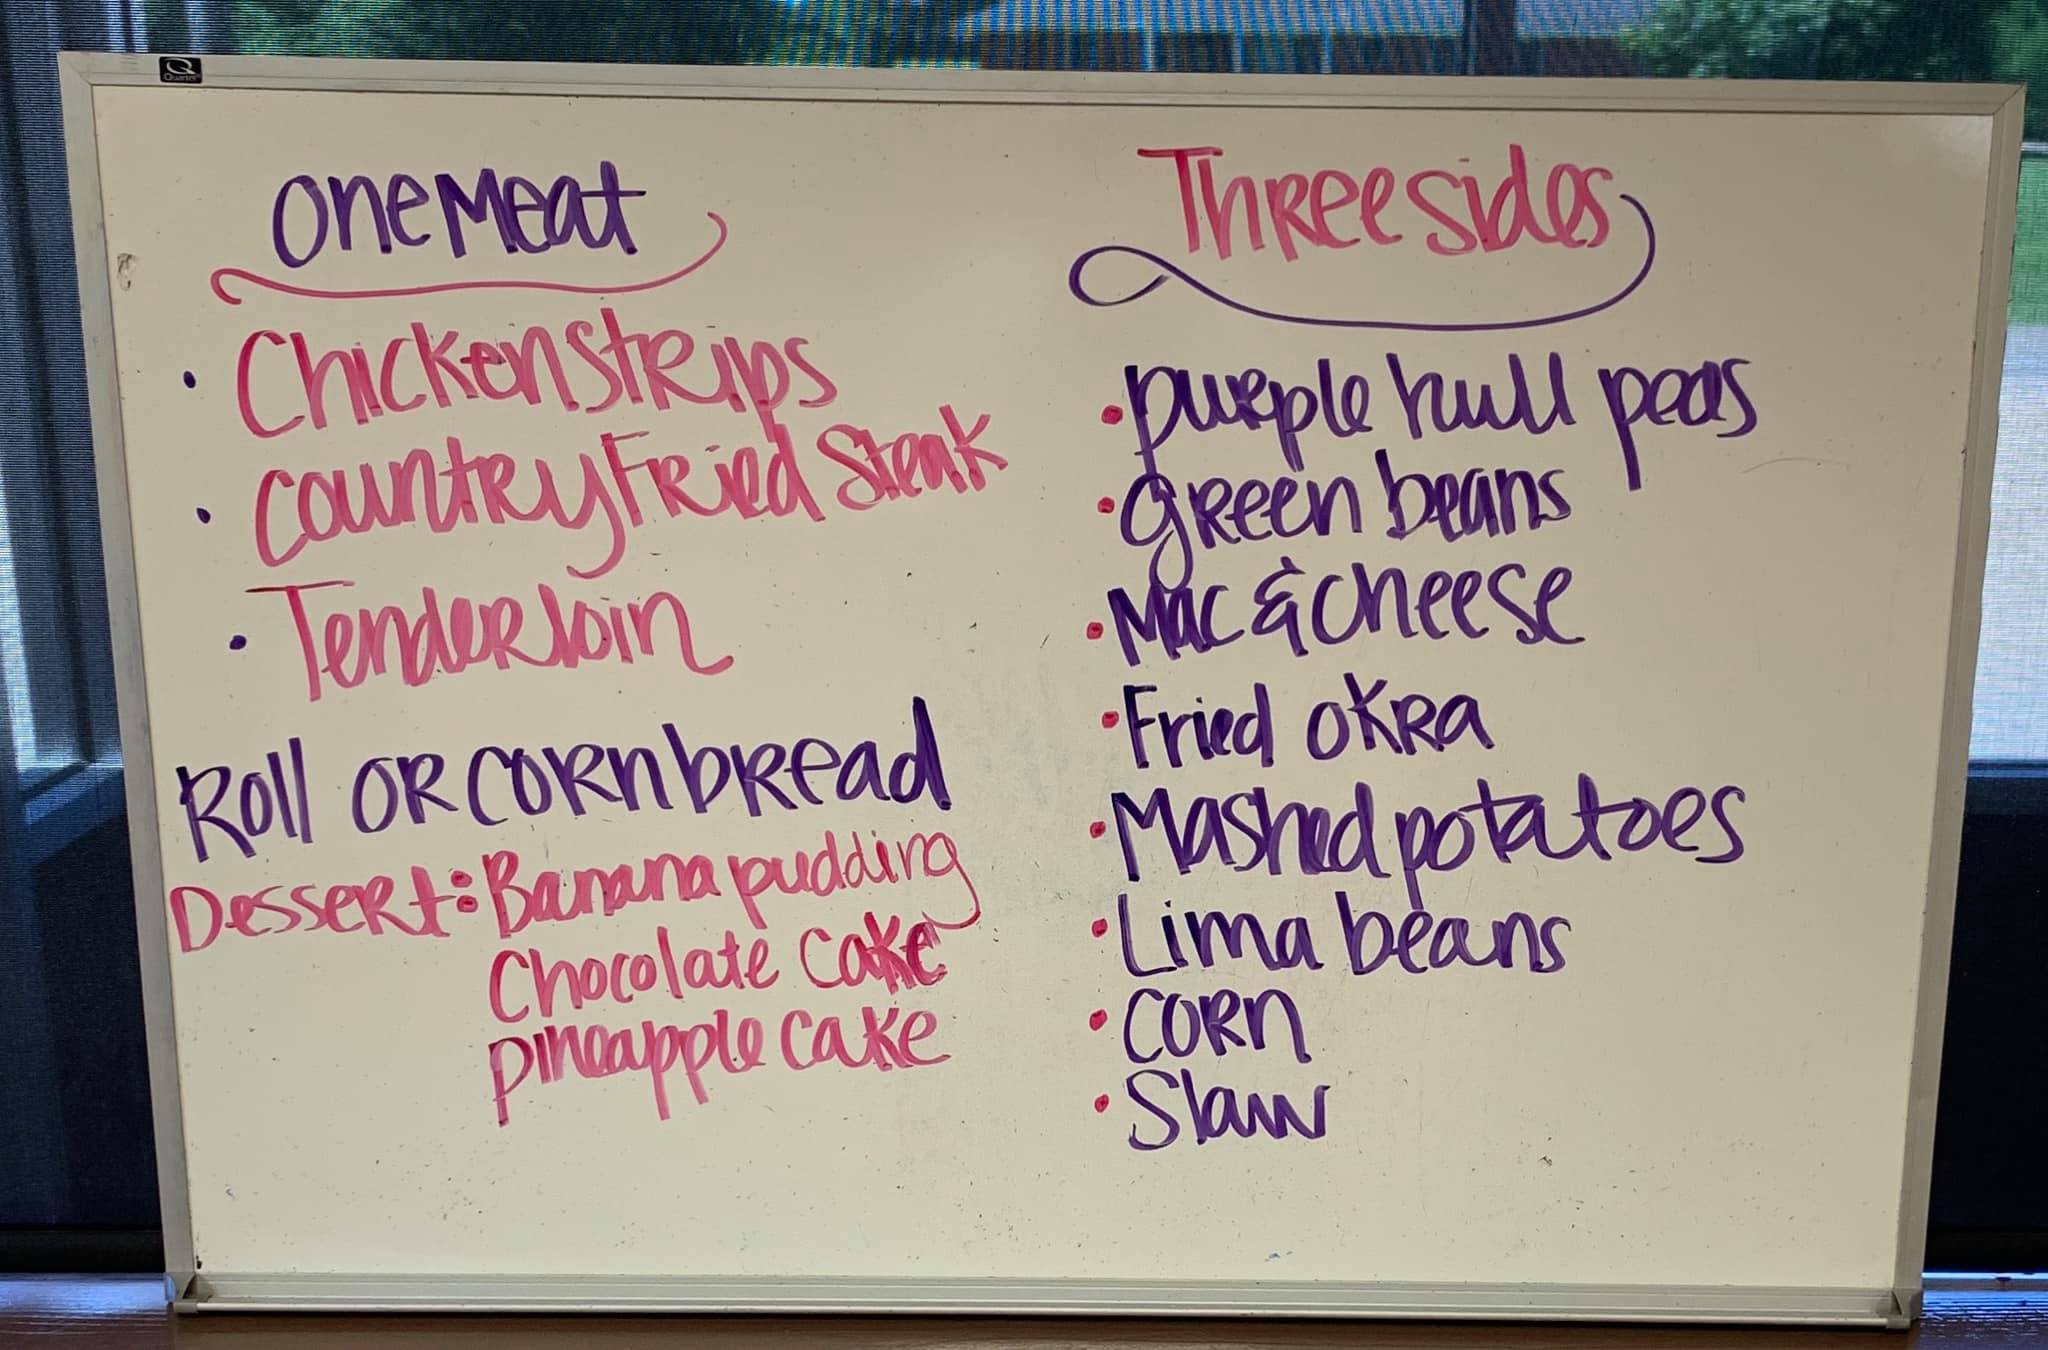 Quartet
One Meat
• Chicken strips
• Country Fried Steak
• Tenderloin
Roll or cornbread
Dessert: Banana pudding
Chocolate cake
pineapple cake
Three sides
• purple hull peas
• green beans
• Mac & cheese
• Fried okra
• Mashed potatoes
• Lima beans
• corn
• Slaw